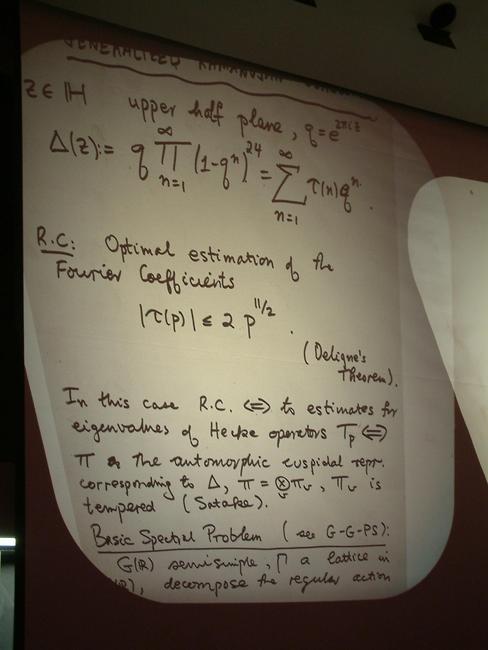 GENERALIZED RAMANUJAN
Z ∈ ℍ upper half plane, q = e^{2πiz}
Δ(z) := q ∏_{n=1}^{∞} (1-q^n)^{24} = ∑_{n=1}^{∞} τ(n)q^n.
R.C: Optimal estimation of the
Fourier Coefficients
|τ(p)| ≤ 2 p^{11/2}.
(Deligne's
Theorem).
In this case R.C. ⇔ to estimates for
eigenvalues of Hecke operators T_p ⇔
π the automorphic cuspidal repr.
corresponding to Δ, π = ⊗_v π_v, π_v is
tempered (Satake).
Basic Spectral Problem (see G-G-PS):
G(R) semisimple, Γ a lattice in
decompose the regular action